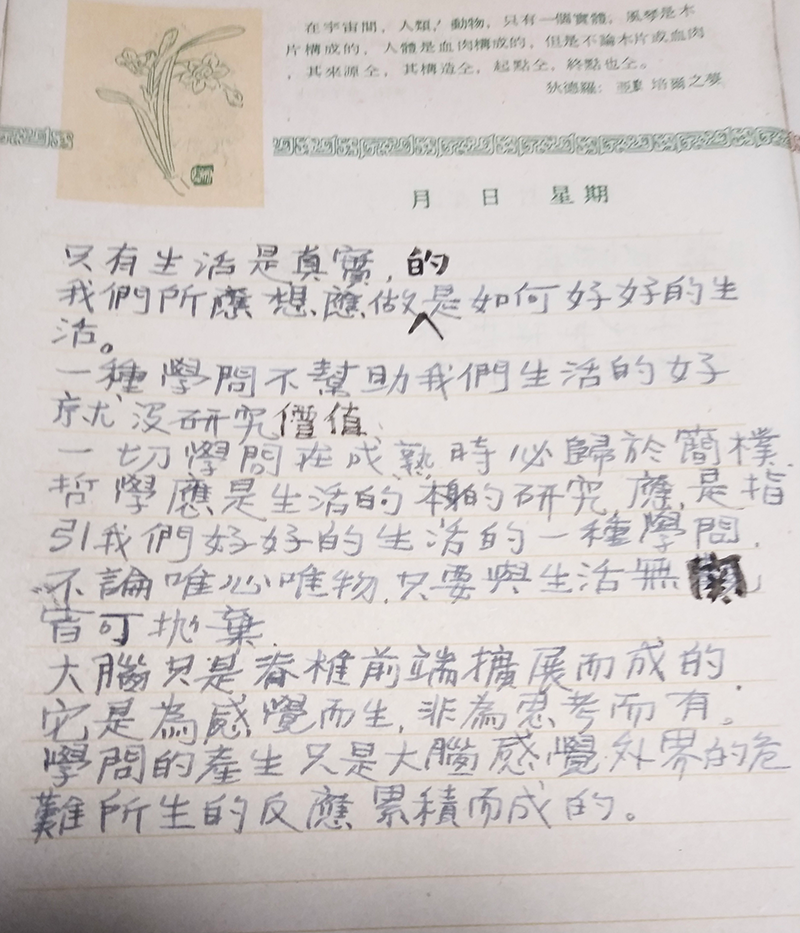 在宇宙間，人類！動物，只有一個實體，風琴是木
片構成的，人體是血肉構成的，但是不論木片或血肉
，其來源仝，其構造仝，起點仝，終點也仝。
狄德羅：培爾之夢
月 日 星期
只有生活是真實，的
我們所應想、應做是如何好好的生
活。
一種學問不幫助我們生活的好
就沒研究價值、
一切學問在成熟時必歸於簡樸、
哲學應是生活的本身的研究、應是指
引我們好好的生活的一種學問、
不論唯心唯物、只要與生活無
皆可拋棄、
大腦只是脊椎前端擴展而成的、
它是為感覺而生，非為思考而有。
學問的產生只是大腦感覺外界的危
難所生的反應累積而成的。